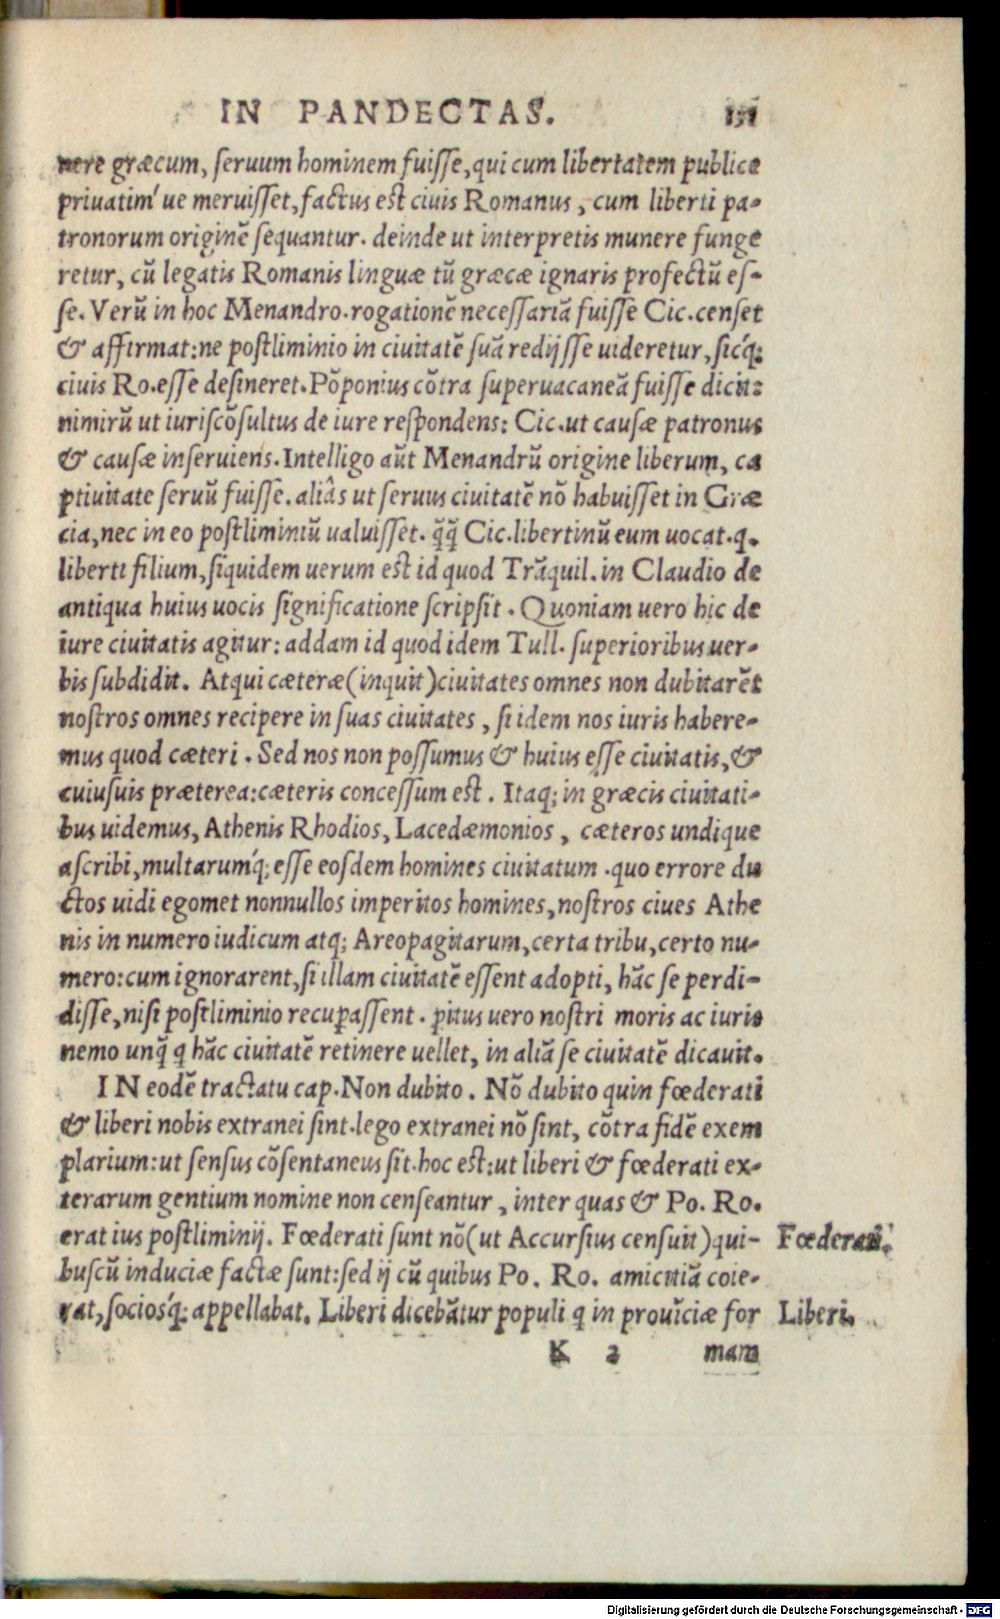 IN PANDECTAS. 151
nere græcum, seruum hominem fuisse, qui cum libertatem publice
priuatim've meruisset, factus est ciuis Romanus, cum liberti pa-
tronorum originē sequantur. deinde ut interpretis munere funge
retur, cū legatis Romanis linguæ tū græcæ ignaris profectū es-
se. Verū in hoc Menandro. rogationē necessariā fuisse Cic. censet
& affirmat: ne postliminio in ciuitatē suā redijsse uideretur, sicq́;
ciuis Ro. esse desineret. Pōponius cōtra superuacaneā fuisse dicit:
nimirū ut iuriscōsultus de iure respondens: Cic. ut causæ patronus
& causæ inseruiens. Intelligo aūt Menandrū origine liberum, ca
ptiuitate seruū fuisse. aliâs ut seruus ciuitatē nō habuisset in Græ
cia, nec in eo postliminiū ualuisset. q̄q̄ Cic. libertinū eum uocat. q.
liberti filium, siquidem uerum est id quod Trāquil. in Claudio de
antiqua huius uocis significatione scripsit. Quoniam uero hic de
iure ciuitatis agitur: addam id quod idem Tull. superioribus uer-
bis subdidit. Atqui cæteræ (inquit) ciuitates omnes non dubitarēt
nostros omnes recipere in suas ciuitates, si idem nos iuris habere-
mus quod cæteri. Sed nos non possumus & huius esse ciuitatis, &
cuiusuis præterea: cæteris concessum est. Itaq; in græcis ciuitati-
bus uidemus, Athenis Rhodios, Lacedæmonios, cæteros undique
ascribi, multarumq́; esse eosdem homines ciuitatum. quo errore du
ctos uidi egomet nonnullos imperitos homines, nostros ciues Athe
nis in numero iudicum atq; Areopagitarum, certa tribu, certo nu-
mero: cum ignorarent, si illam ciuitatē essent adopti, hāc se perdi-
disse, nisi postliminio recuꝑassent. ꝑitus uero nostri moris ac iuris
nemo unq̄ q hāc ciuitatē retinere uellet, in aliā se ciuitatē dicauit.
IN eodē tractatu cap. Non dubito. Nō dubito quin fœderati
& liberi nobis extranei sint. lego extranei nō sint, cōtra fidē exem
plarium: ut sensus cōsentaneus sit. hoc est: ut liberi & fœderati ex-
terarum gentium nomine non censeantur, inter quas & Po. Ro.
erat ius postliminij. Fœderati sunt nō (ut Accursius censuit) qui-
Fœderati.
buscū induciæ factæ sunt: sed ij cū quibus Po. Ro. amicitiā coie-
rat, sociosq́; appellabat. Liberi dicebātur populi q in prouīciæ for
Liberi.
K 2 mam
Digitalisierung gefördert durch die Deutsche Forschungsgemeinschaft - DFG